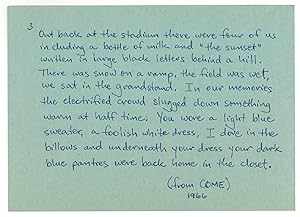 3
Out back at the stadium there were four of us
including a bottle of milk and "the sunset"
written in large black letters behind a hill.
There was snow on a ramp, the field was wet,
we sat in the grandstand. In our memories
the electrified crowd slugged down something
warm at half time. You wore a light blue
sweater, a foolish white dress, I dove in the
billows and underneath your dress your dark
blue panties were back home in the closet.
(from COME)
1966